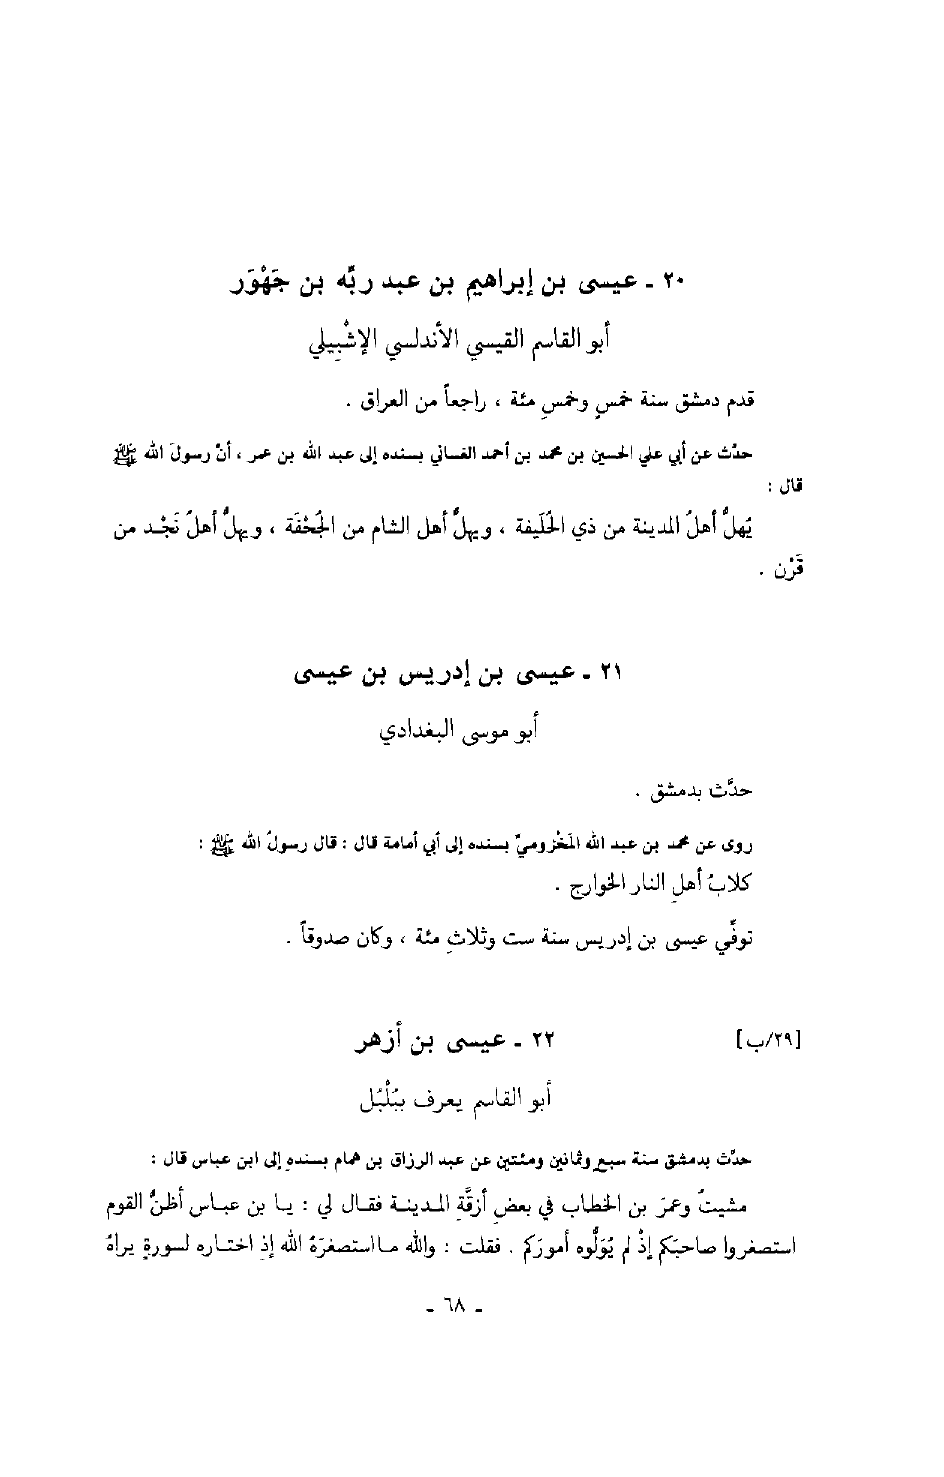 ٢٠ ـ عيسى بن إبراهيم بن عبد ربّه بن جَهْوَر
أبو القاسم القيسي الأندلسي الإشْبِيلي
قدم دمشق سنة خمسٍ وخمسِ مئة ، راجعاً من العراق .
حدَّث عن أبي علي الحسين بن محمد بن أحمد الغساني بسنده إلى عبد الله بن عمر ، أنّ رسولَ الله ﷺ
قال :
يُهلُّ أهلُ المدينة من ذي الحُلَيفة ، ويهلُّ أهل الشام من الجُحْفَة ، ويهلُّ أهلُ نَجْد من
قَرْن .
٢١ ـ عيسى بن إدريس بن عيسى
أبو موسى البغدادي
حدَّث بدمشق .
روى عن محمد بن عبد الله المَخْزوميّ بسنده إلى أبي أمامة قال : قال رسولُ الله ﷺ :
كلابُ أهلِ النار الخوارج .
توفّي عيسى بن إدريس سنة ست وثلاثِ مئة ، وكان صدوقاً .
[٢٩/ب] ٢٢ ـ عيسى بن أزهر
أبو القاسم يعرف ببُلْبُل
حدَّث بدمشق سنة سبعٍ وثمانين ومئتين عن عبد الرزاق بن همام بسندهِ إلى ابن عباس قال :
مشيتُ وعمرَ بن الخطاب في بعضِ أزقَّةِ المدينة فقال لي : يا بن عباس أظنُّ القوم
استصغروا صاحبَكم إذْ لم يُوَلُّوه أمورَكم . فقلت : والله ما استصغرَهُ الله إذِ اختاره لسورةٍ يراهُ
ـ ٦٨ ـ